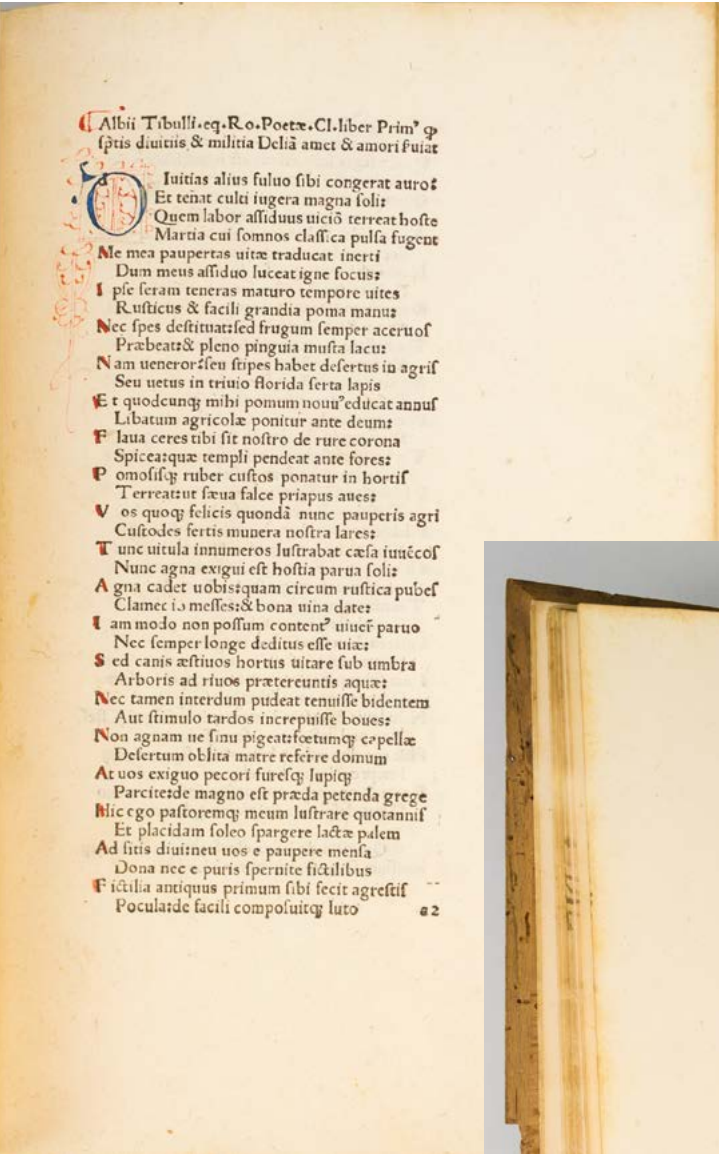 Albii Tibulli.eq.Ro.Poetæ.Cl.liber Prim⁹ ꝙ
sp̃tis diuitiis & militia Deliã amet & amori ſuiat
DIuitias alius fuluo ſibi congerat auro:
Et teñat culti iugera magna ſoli:
Quem labor aſſiduus uiciõ terreat hoſte
Martia cui ſomnos claſſica pulſa fugent
Me mea paupertas uitæ traducat inerti
Dum meus aſſiduo luceat igne focus:
I pſe ſeram teneras maturo tempore uites
Ruſticus & facili grandia poma manu:
Nec ſpes deſtituat:ſed frugum ſemper aceruoſ
Præbeat:& pleno pinguia muſta lacu:
Nam ueneror:ſeu ſtipes habet deſertus in agriſ
Seu uetus in triuio florida ſerta lapis
E t quodcunqꝫ mihi pomum nouu⁹ educat annuſ
Libatum agricolæ ponitur ante deum:
F laua ceres tibi ſit noſtro de rure corona
Spicea:quæ templi pendeat ante fores:
P omoſiſqꝫ ruber cuſtos ponatur in hortiſ
Terreat:ut ſæua falce priapus aues:
V os quoqꝫ felicis quondã nunc pauperis agri
Cuſtodes fertis munera noſtra lares:
T unc uitula innumeros luſtrabat cæſa iuuẽcoſ
Nunc agna exigui eſt hoſtia parua ſoli:
A gna cadet uobis:quam circum ruſtica pubeſ
Clamet io meſſes:& bona uina date:
I am modo non poſſum content⁹ uiuer̃ paruo
Nec ſemper longe deditus eſſe uiæ:
S ed canis æſtiuos hortus uitare ſub umbra
Arboris ad riuos prætereuntis aquæ:
Nec tamen interdum pudeat tenuiſſe bidentem
Aut ſtimulo tardos increpuiſſe boues:
Non agnam ue ſinu pigeat:fœtumqꝫ capellæ
Deſertum oblita matre referre domum
At uos exiguo pecori fureſqꝫ lupiqꝫ
Parcite:de magno eſt præda petenda grege
Hic ego paſtoremqꝫ meum luſtrare quotanniſ
Et placidam ſoleo ſpargere lactæ palem
Ad ſitis diui:neu uos e paupere menſa
Dona nec e puris ſpernite fictilibus
F ictilia antiquus primum ſibi fecit agreſtiſ
Pocula:de facili compoſuitqꝫ luto
a2